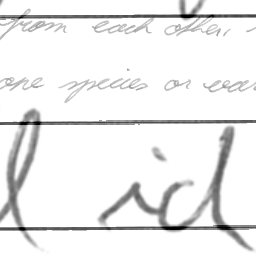 from each other,
one species or
id